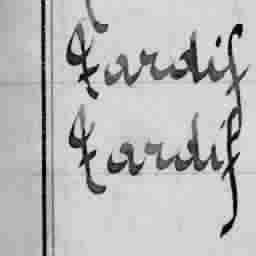 Tardif
Tardif